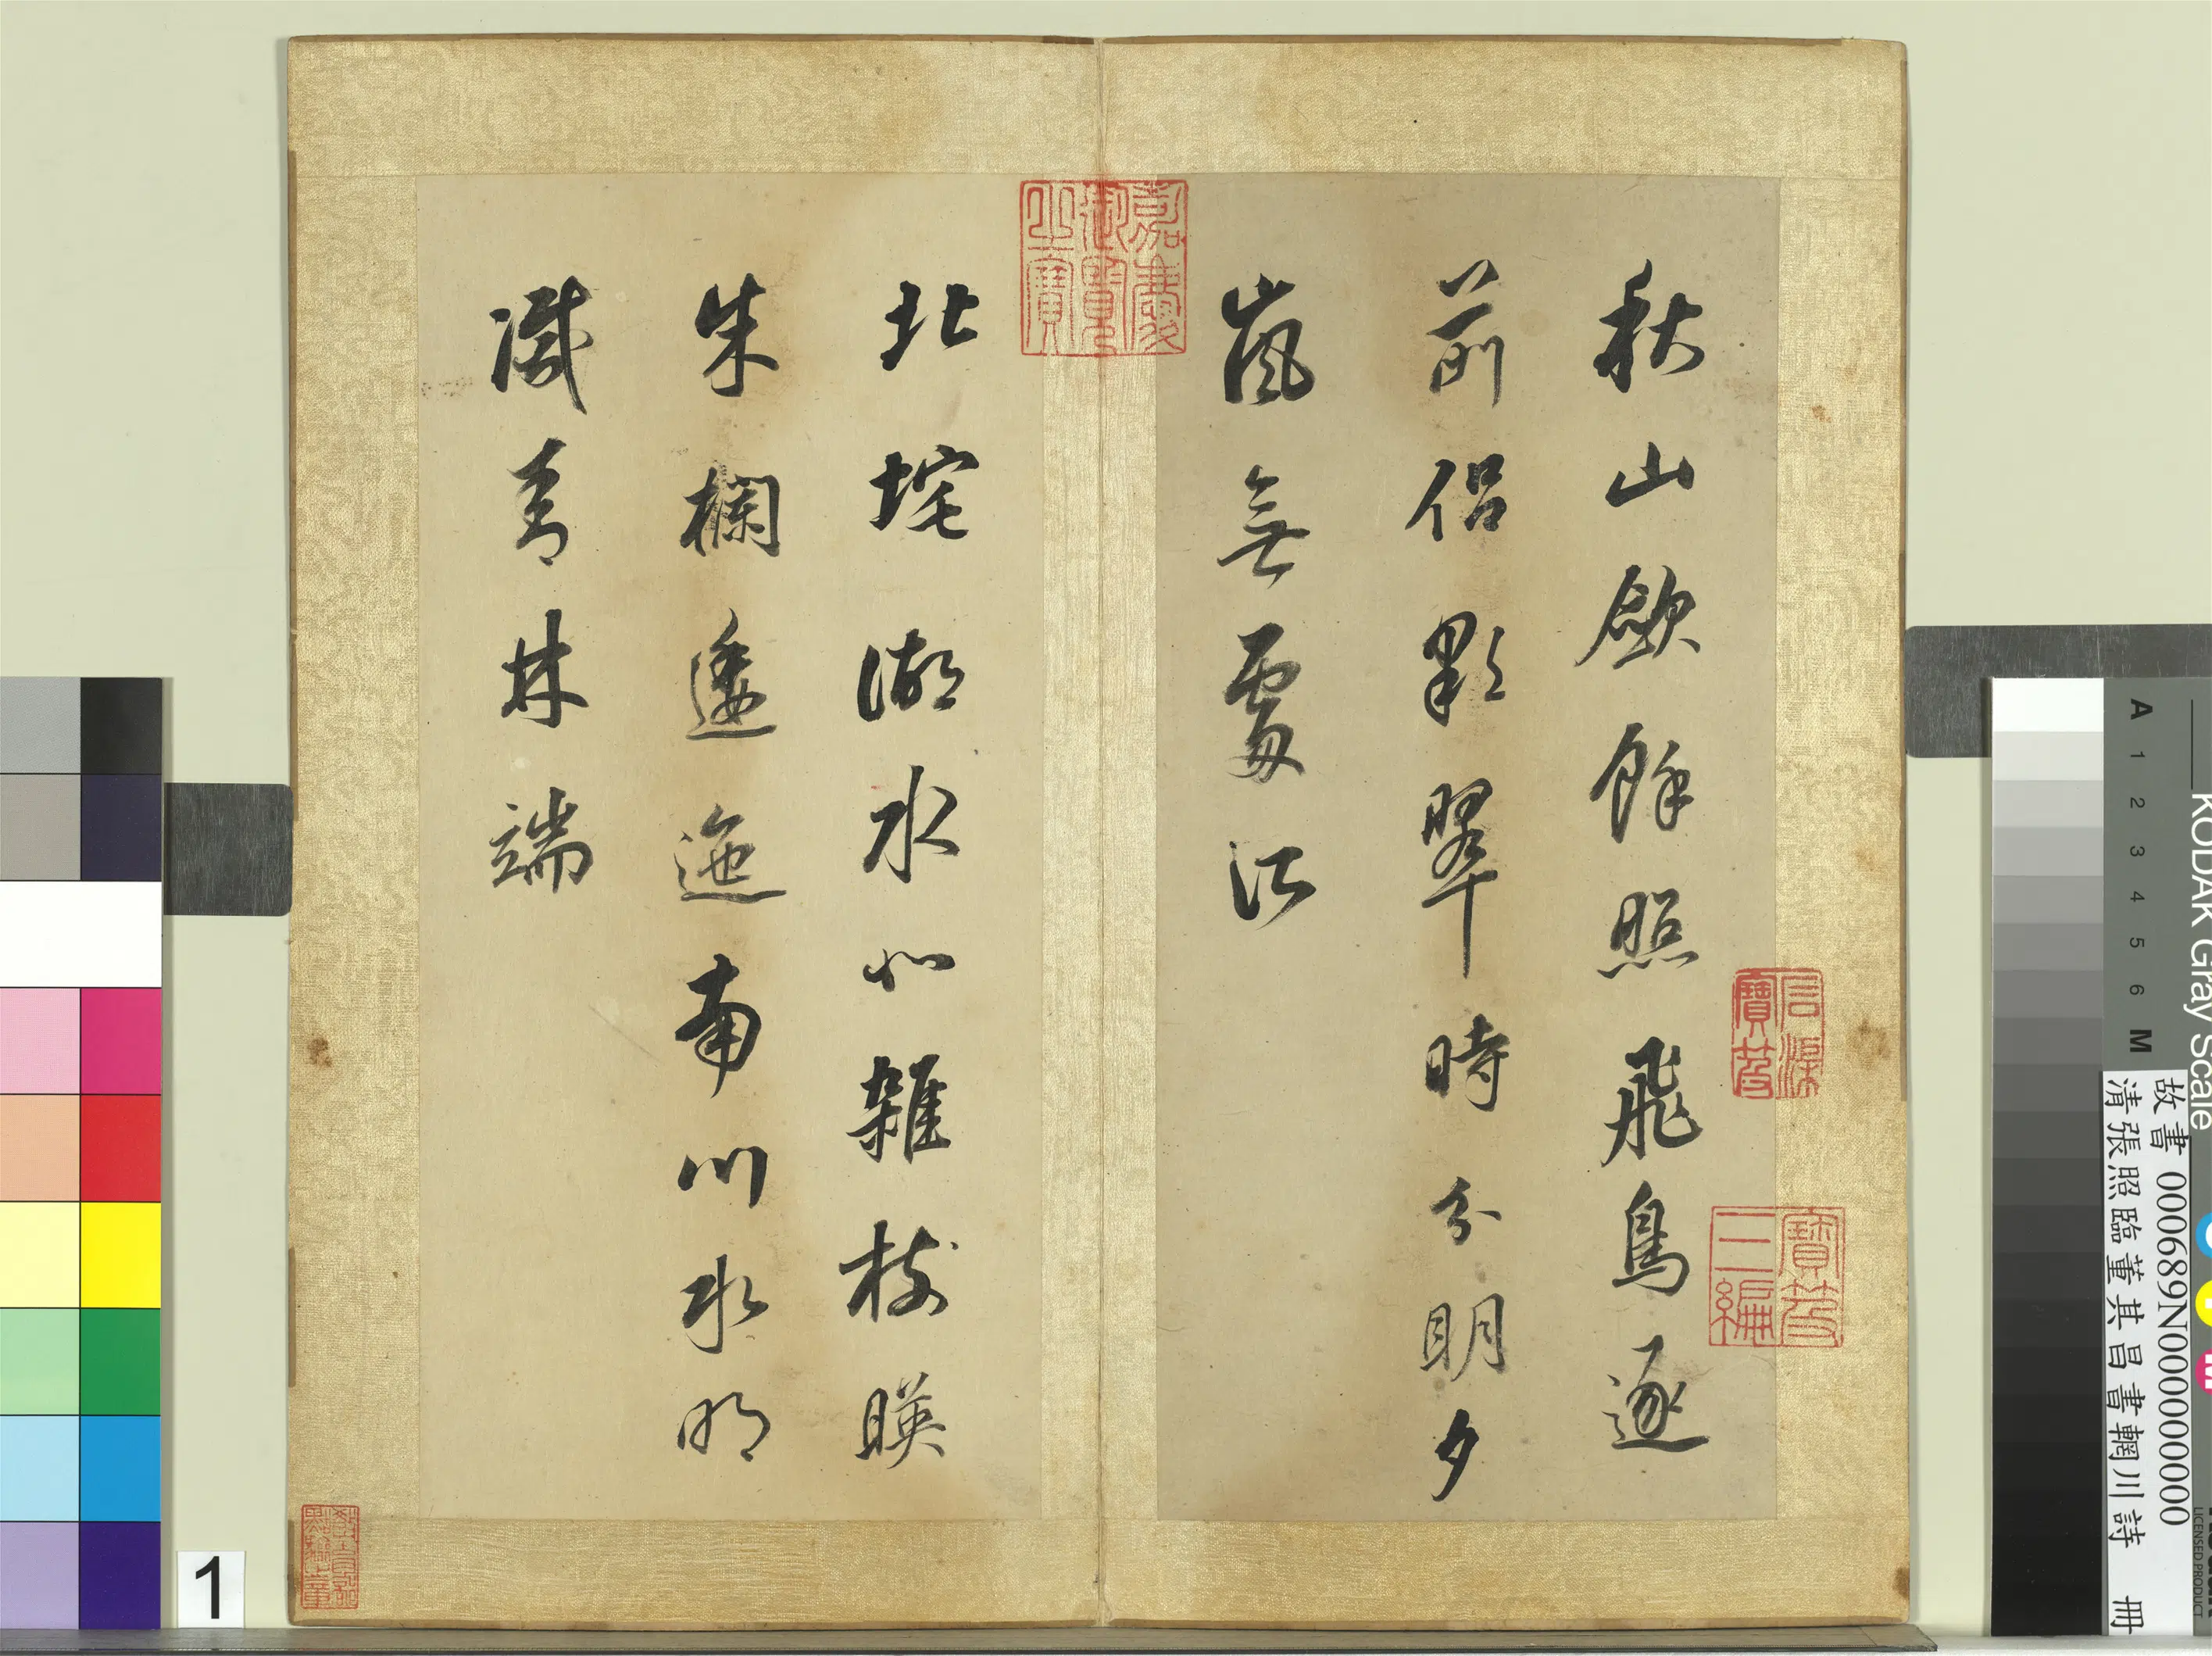 秋山斂餘照飛鳥逐
前侶彩翠時分明夕
嵐無處所
北垞湖水北雜樹暎
朱欄逶迤南川水明
滅青林端
嘉慶御覽之寶
寶笈三編
1
KODAK Gray Scale
A 1 2 3 4 5 6 M
LICENSED PRODUCT
故書 000689N000000000
清張照臨董其昌書輞川詩 冊